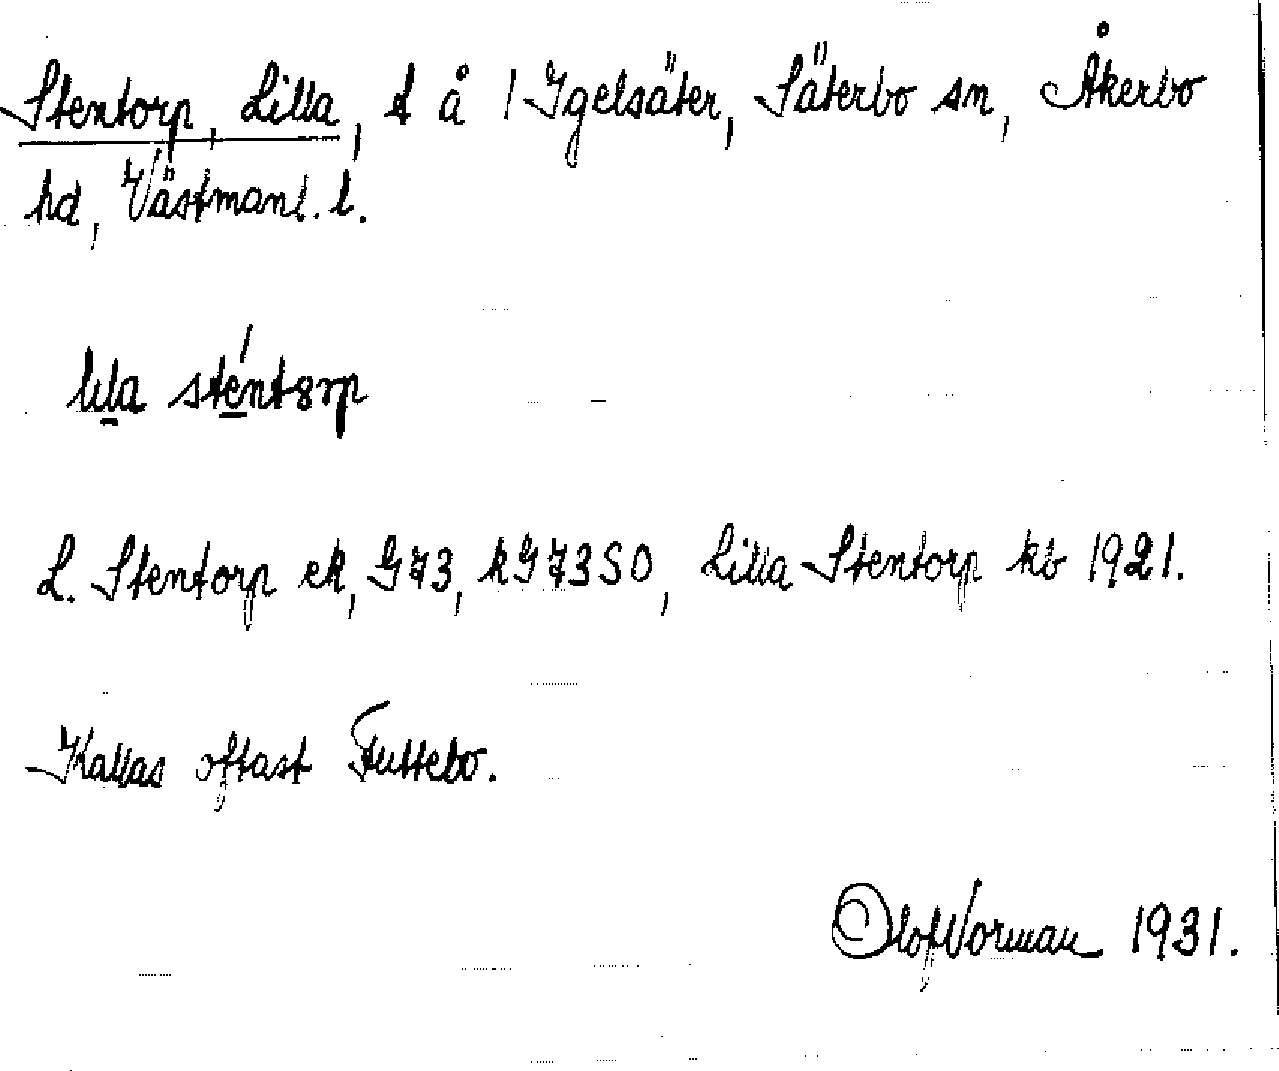 Stentorp, Lilla, t å 1 Igelsäter, Säterbo sn, Åkerbo
hd, Västmanl. l.
lila sténtorp
L. Stentorp ek, G73, kG73SO, Lilla Stentorp kb 1921.
Kallas oftast Futtebo.
Olof Norman 1931.